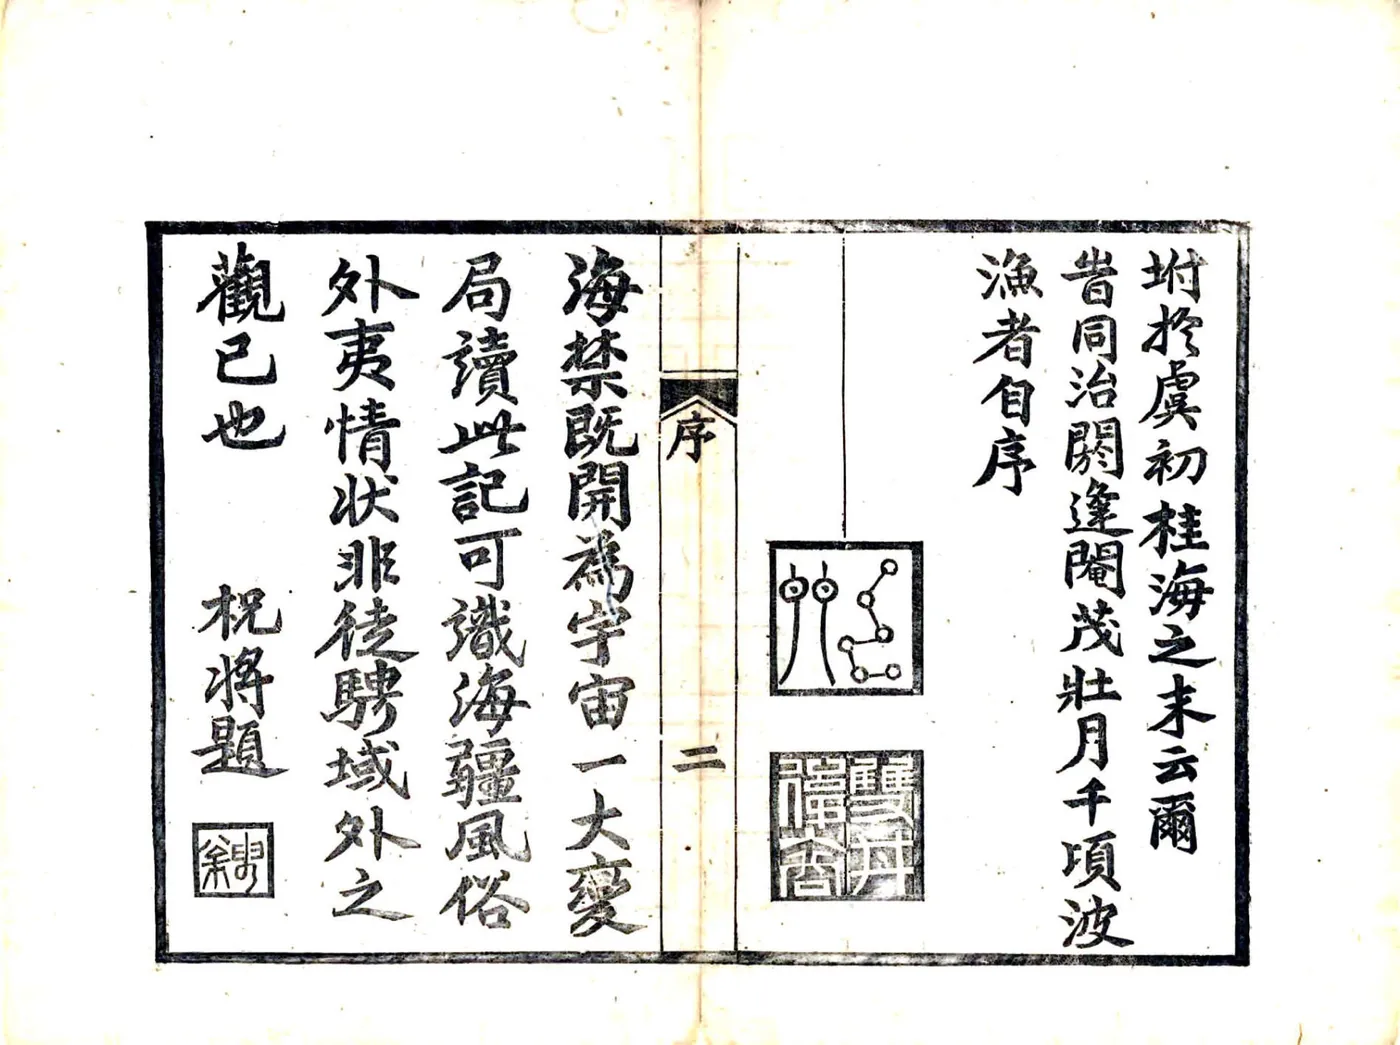 坿於虞初桂海之末云爾
旹同治閼逢閹茂壯月千頃波
漁者自序
序
二
海禁既開為宇宙一大變
局讀此記可識海疆風俗
外夷情狀非徒騁域外之
觀已也 祝將題